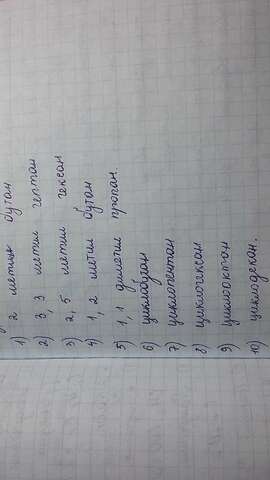 1) 2 метил бутан
2) 3, 3 метил гептан
3) 2, 5 метил гексан
4) 1, 2 метил бутан
5) 1, 1 диметил пропан.
6) циклобутан
7) циклопентан
8) циклогексан
9) циклооктан
10) циклодекан.